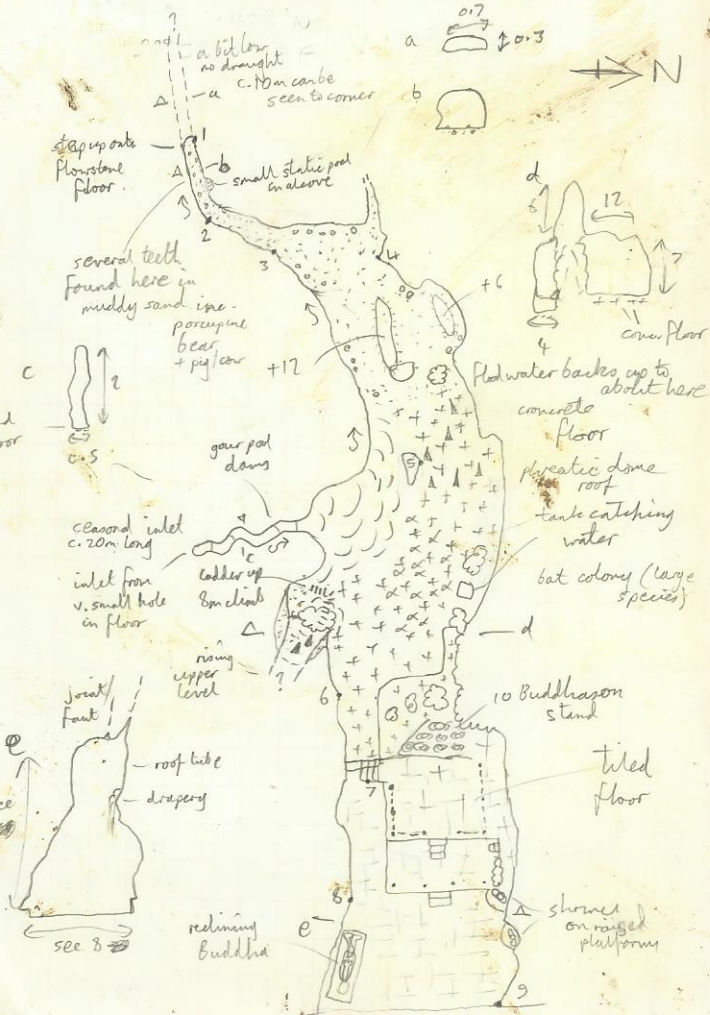 ?
a bit low
no draught
c. 10m can be
seen to corner
a
a
0.7
0.3
b
N
step up onto
flowstone
floor
1
b
small static pool
in alcove
2
3
4
several teeth
found here in
muddy sand inc.
porcupine
bear
+ pig/cow
d
12
7
4
cover floor
+6
+12
c
2
0.5
floodwater backs up to
about here
concrete
floor
5
gour pool
dams
phreatic dome
roof
tank catching
water
seasonal inlet
c. 20m long
c
inlet from
v. small hole
in floor
ladder up
8m climb
bat colony (large
species)
d
rising
upper
level
?
6
10 Buddhas on
stand
joint/
fault
e
roof tube
drapery
see 8
7
tiled
floor
8
e
reclining
Buddha
shrines
on raised
platforms
9